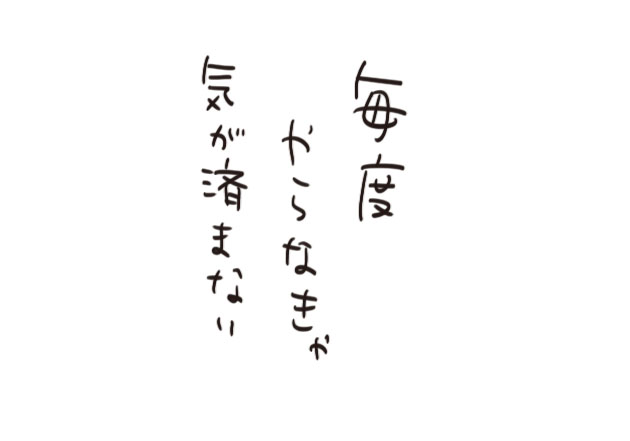 毎度
やらなきゃ
気が済まない